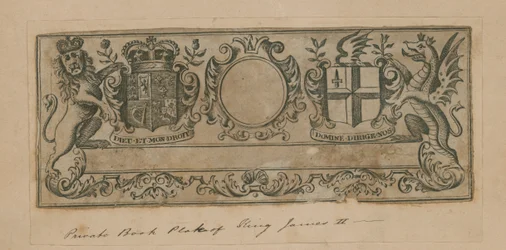 DIET·ET·MON·DROIT
DOMINE·DIRIGE·NOS
Private Book Plate of King James II